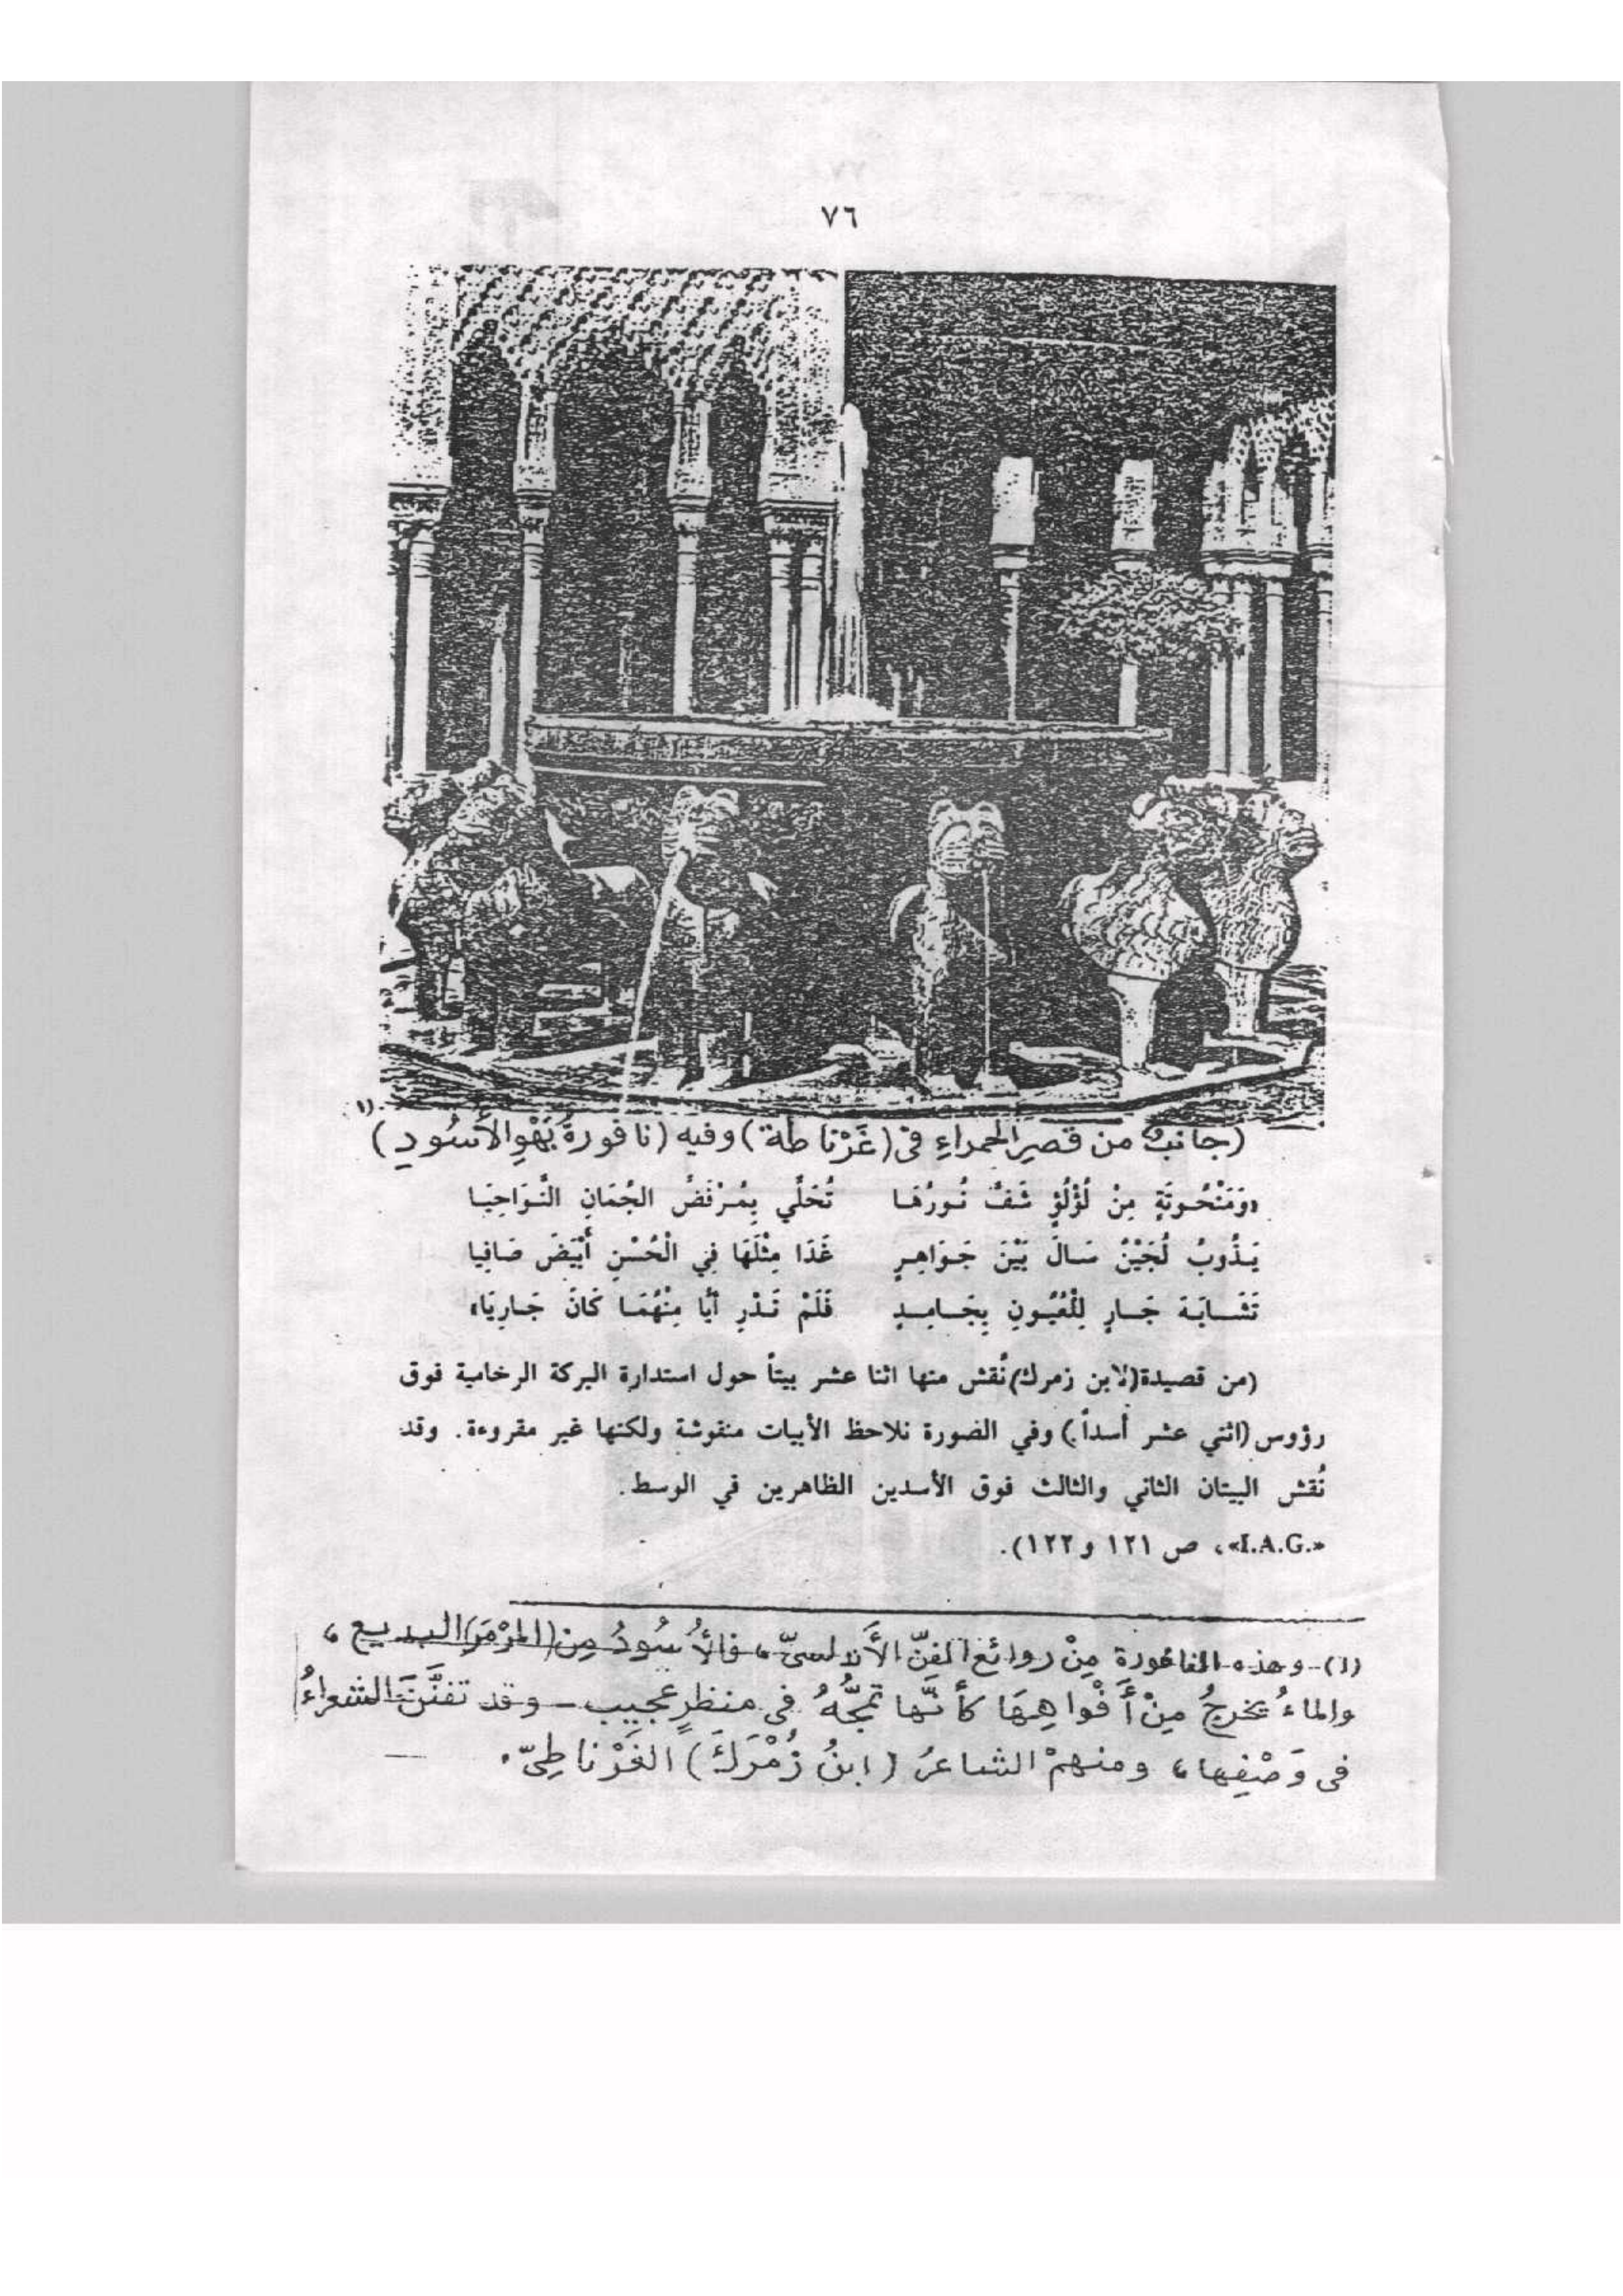 ٧٦
(جانبٌ من قصرِ الحمراءِ فى (غَرْناطة) وفيه (نافورةُ بَهْوِ الأُسُودِ) (١)
«وَمَنْحُوتَةٍ مِنْ لُؤْلُؤٍ شَفَّ نُورُهَا تُحَلِّي بِمُرْفَضِّ الجُمَانِ النَّوَاحِيَا
يَذُوبُ لُجَيْنٌ سَالَ بَيْنَ جَوَاهِرٍ غَدَا مِثْلَهَا فِي الْحُسْنِ أَبْيَضَ صَافِيا
تَشَابَهَ جَارٍ لِلْعُيُونِ بِجَامِدٍ فَلَمْ نَدْرِ أَيًّا مِنْهُمَا كَانَ جَارِيَا»
(من قصيدة (لابن زمرك) نُقش منها اثنا عشر بيتاً حول استدارة البركة الرخامية فوق
رؤوس (اثني عشر أسداً.) وفي الصورة نلاحظ الأبيات منقوشة ولكنها غير مقروءة. وقد
نُقش البيتان الثاني والثالث فوق الأسدين الظاهرين في الوسط.
«I.A.G.»، ص ١٢١ و١٢٢).
(١) - وهذه النافورة مِنْ روائع الفنّ الأَندلسىّ، فالأُسُودُ مِن (المَرْمَرِ) البديع،
والماءُ يخرجُ مِنْ أَفْواهِهَا كأنّها تمجُّهُ فى منظرٍ عجيبٍ - وقد تفنَّنَ الشعراءُ
فى وَصْفِها، ومنهمْ الشاعرُ (ابنُ زُمْرَكَ) الغَرْناطِىّ.